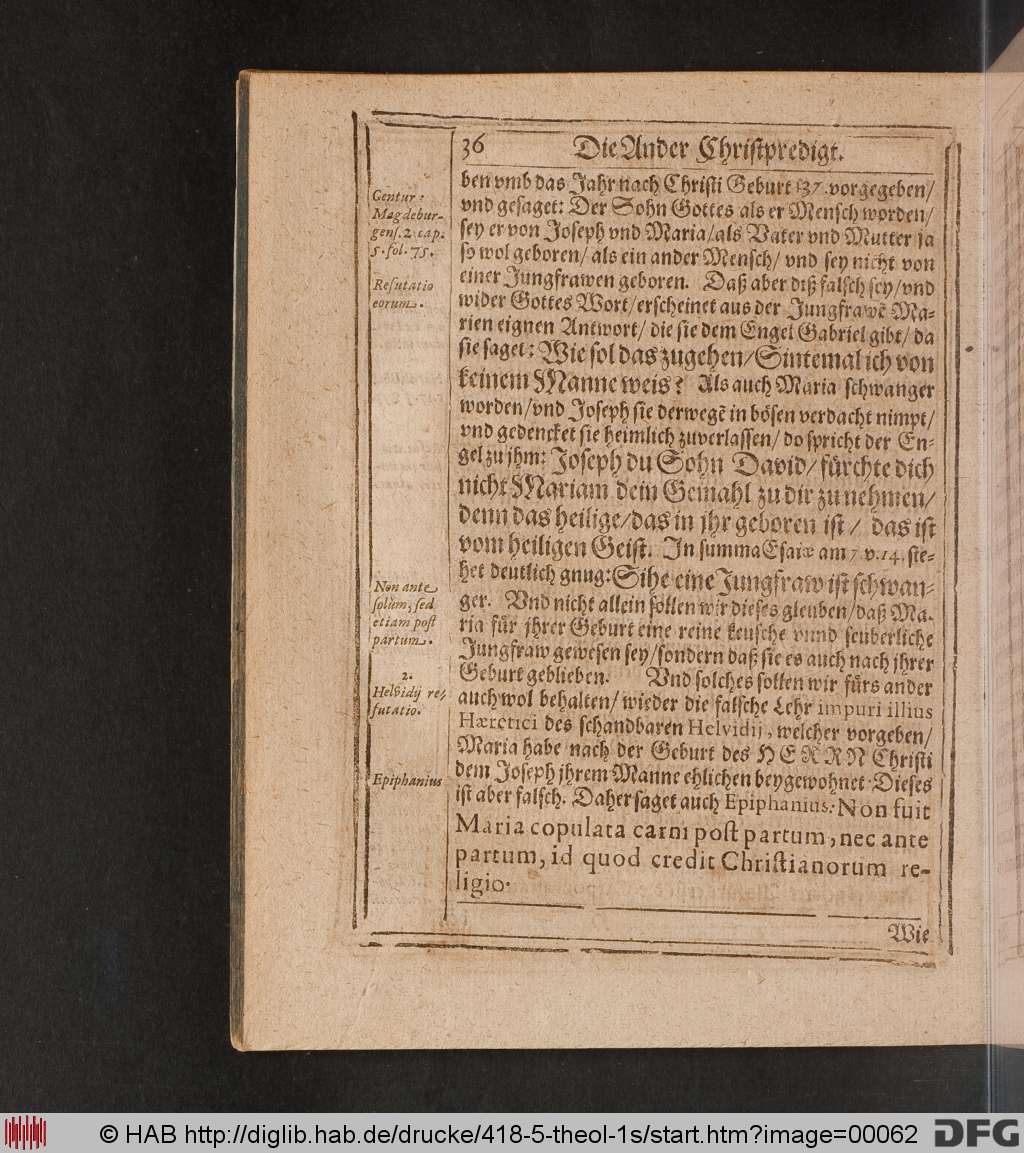 36 Die Ander Christpredigt.
ben vmb das Jahr nach Christi Geburt 137. vorgegeben/
vnd gesaget: Der Sohn Gottes als er Mensch worden/
sey er von Joseph vnd Maria/als Vater vnd Mutter ja
so wol geboren/ als ein ander Mensch/ vnd sey nicht von
einer Jungfrawen geboren. Daß aber diß falsch sey/vnd
wider Gottes Wort/erscheinet aus der Jungfrawẽ Ma-
rien eignen Antwort/ die sie dem Engel Gabriel gibt/ da
sie saget: Wie sol das zugehen/Sintemal ich von
keinem Manne weis? Als auch Maria schwanger
worden/vnd Joseph sie derwegẽ in bösen verdacht nimpt/
vnd gedencket sie heimlich zuverlassen/ do spricht der En-
gel zu jhm: Joseph du Sohn David/ fürchte dich
nicht Mariam dein Gemahl zu dir zu nehmen/
denn das heilige/das in jhr geboren ist/ das ist
vom heiligen Geist. In summa Esaiæ am 7. v. 14. ste-
het deutlich gnug: Sihe eine Jungfraw ist schwan-
ger. Vnd nicht allein sollen wir dieses gleuben/daß Ma-
ria für jhrer Geburt eine reine keusche vnnd seuberliche
Jungfraw gewesen sey/sondern daß sie es auch nach jhrer
Geburt geblieben. Vnd solches sollen wir fürs ander
auch wol behalten/ wieder die falsche Lehr impuri illius
Hæretici des schandbaren Helvidij, welcher vorgeben/
Maria habe nach der Geburt des HERRN Christi
dem Joseph jhrem Manne ehlichen beygewohnet. Dieses
ist aber falsch. Daher saget auch Epiphanius: Non fuit
Maria copulata carni post partum, nec ante
partum, id quod credit Christianorum re-
ligio.
Wie
Centur:
Magdebur-
gens. 2. cap.
5. fol. 75.
Refutatio
eorum.
Non ante
solùm, sed
etiam post
partum.
2.
Helvidij re-
futatio.
Epiphanius
© HAB http://diglib.hab.de/drucke/418-5-theol-1s/start.htm?image=00062
DFG